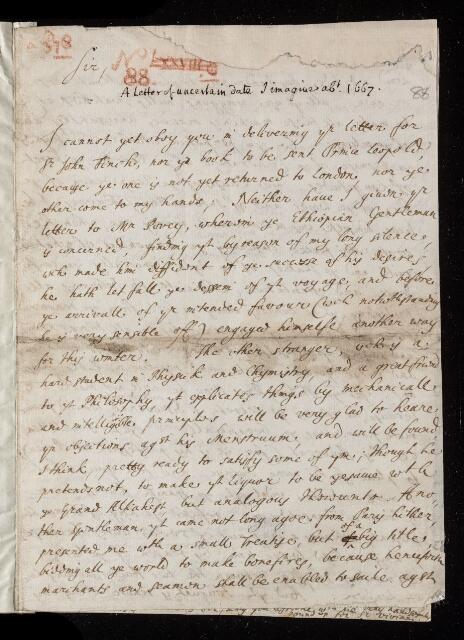 378
Sir,
No LXXVIII
88.
A Letter of uncertain date I imagine abt. 1667.
88
I cannot yet obey you in delivering yr letter for
Sr John Finch, nor ye book to be sent Prince Leopold,
because ye one is not yet returned to London, nor ye
other come to my hands. Neither have I given yr
letter to Mr Povey, wherein ye Ethiopian Gentleman
is concerned, finding yt by reason of my long silence,
wch made him diffident of ye successe of his desires,
he hath let fall ye dessein of yt voyage, and before
ye arrivall of yr intended favour (wch notwthstanding
he is very sensible of) engaged himselfe another way
for this winter. The other stranger, who is a
hard student in Physick and Chymistry and a great friend
to yt Philosophy, yt explicates things by mechanicall
and intelligible principles will be very glad to heare
yr objections agst his Menstruum, and will be found
I think pretty ready to satisfy some of ym; though he
pretends not, to make yt liquor to be ye same wth
ye Grand Alkahest, but analogous thereunto. Ano-
ther Gentleman, yt came not long agoe from Paris hither
presented me with a small Treatise, but of a big title,
bidding all ye world to make bonefires, because henceforth
marchants and seamen shall be enabled to saile agst